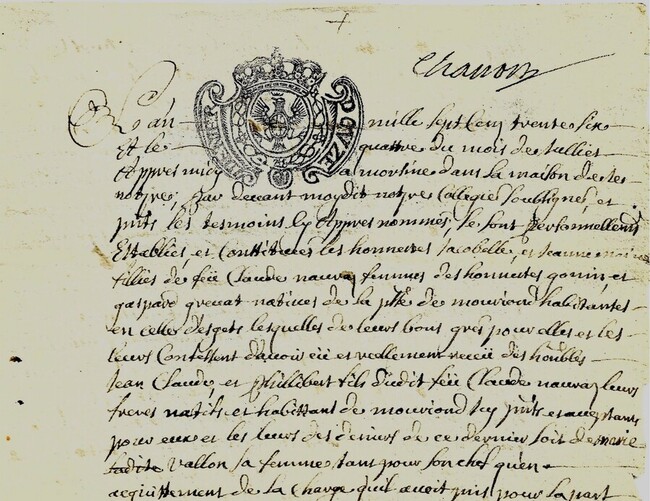 Chanoin
L'an mille sept cent trente six
Et le quattre du mois de Julliet
appres midy a morzine dans la maison de ses
notayre, par devant moy dit notayre Collegié soubsigné, et
prnts les tesmoins cy appres nommés, se sont personnellemt
Establies, et Constituees les honnestes Jacobelle, et Jeanne
filliés de feü Claude nauvaz femmes des honnestes et
gaspard greuat natives de la pñse de mouriond habitantes
en celle desgets lesquelles de leurs bons grés pour elles et les
leurs Confessent d'avoir eü et reellement receü des honbles
Jean Claude, et phillibert fils dudit feü Claude nauvaz leurs
freres natifs et habittant de mouriond icy prnts et acceptants
pour eux et les leurs des deniers de ce dernier soit de marie
ladite vallon sa femme, tant pour son chef qu'en
acquittement de la Charge qu'il avoit pris pour la part